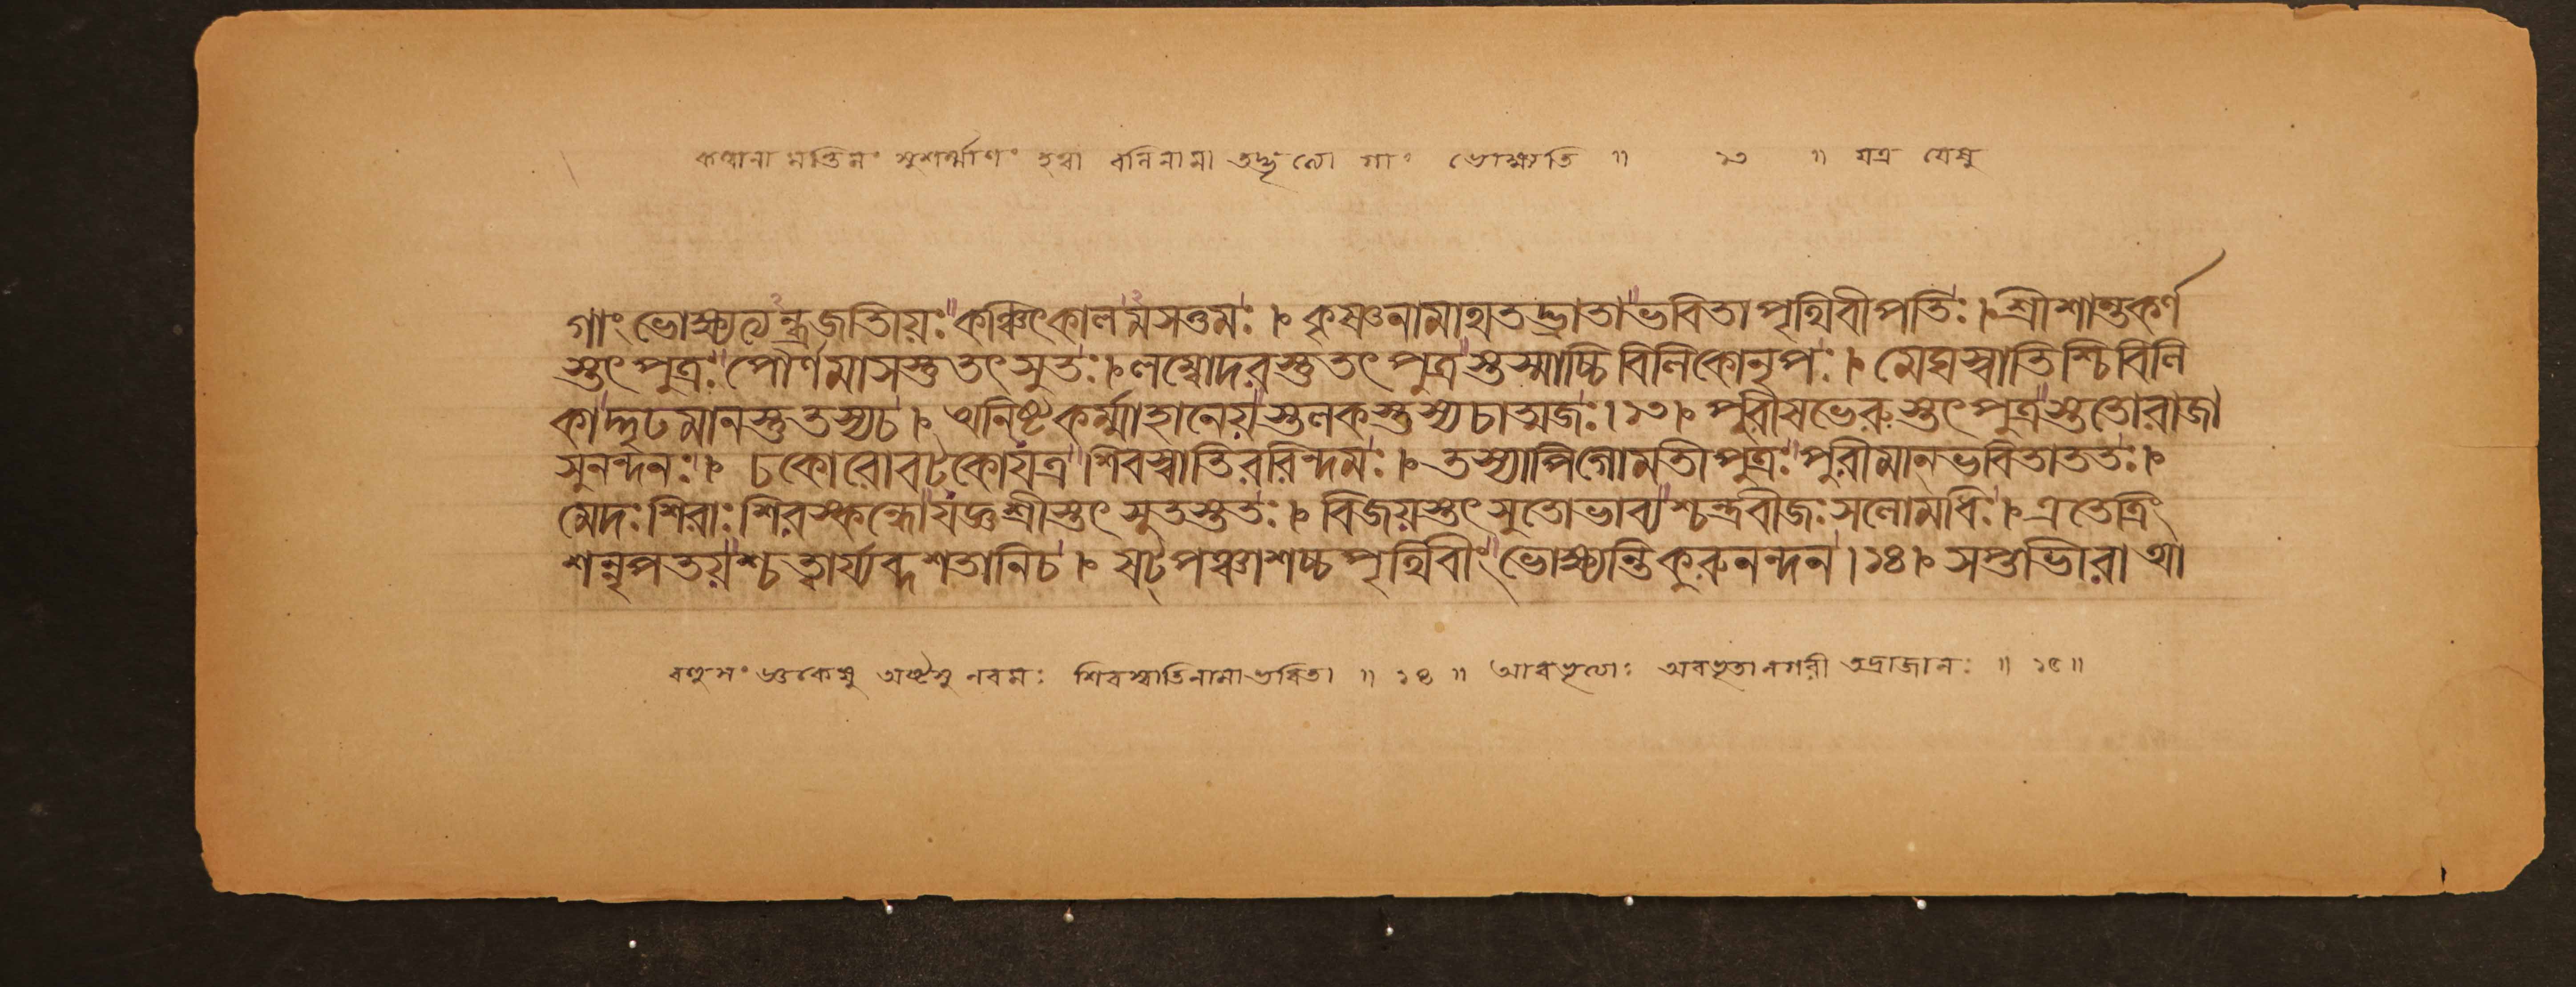 কণ্বানা মন্তিমং সুশর্ম্মাণং হত্বা বলিনামা তদ্ভৃত্যো গাং ভোক্ষ্যতি ॥ ১৩ ॥ যত্র যেষু
গাংভোক্ষ্যত্যন্ধ্রজাতীয়ঃকঞ্চিৎকালমসত্তমঃ। কৃষ্ণনামাথতদ্ভ্রাতাভবিতাপৃথিবীপতিঃ।শ্রীশান্তকর্ণ
স্তৎপুত্রঃপৌর্ণমাসস্তুতৎসুতঃ।লম্বোদরস্তুতৎপুত্রস্তস্মাচ্চিবিলিকোনৃপঃ। মেঘস্বাতিশ্চিবিলি
কাদ্দৃঢমানস্তুতস্যচ। অনিষ্টকর্ম্মাহালেয়স্তলকস্তস্যচাত্মজঃ।১৩। পুরীষভেরুস্তৎপুত্রস্ততোরাজা
সুনন্দনঃ। চকোরোবটকোযত্রশিবস্বাতিররিন্দমঃ। তস্যাপিগোমতীপুত্রঃপুরীমান্ভবিতাততঃ।
মেদঃশিরাঃশিরস্কন্দোযজ্ঞশ্রীস্তৎসুতস্ততঃ। বিজয়স্তৎসুতোভাব্যশ্চন্দ্রবীজঃসলোমধিঃ। এতেত্রিং
শন্নৃপতয়শ্চত্বার্য্যব্দশতানিচ। ষট্পঞ্চাশচ্চপৃথিবীংভোক্ষ্যন্তিকুরুনন্দন।১৪। সপ্তাভীরা আ
বহুষু অষ্টসু নবমঃ শিবস্বাতিনামাভবিতা ॥ ১৪ ॥ আবভৃত্যাঃ অবভৃতানগরী তদ্রাজানঃ ॥ ১৫॥